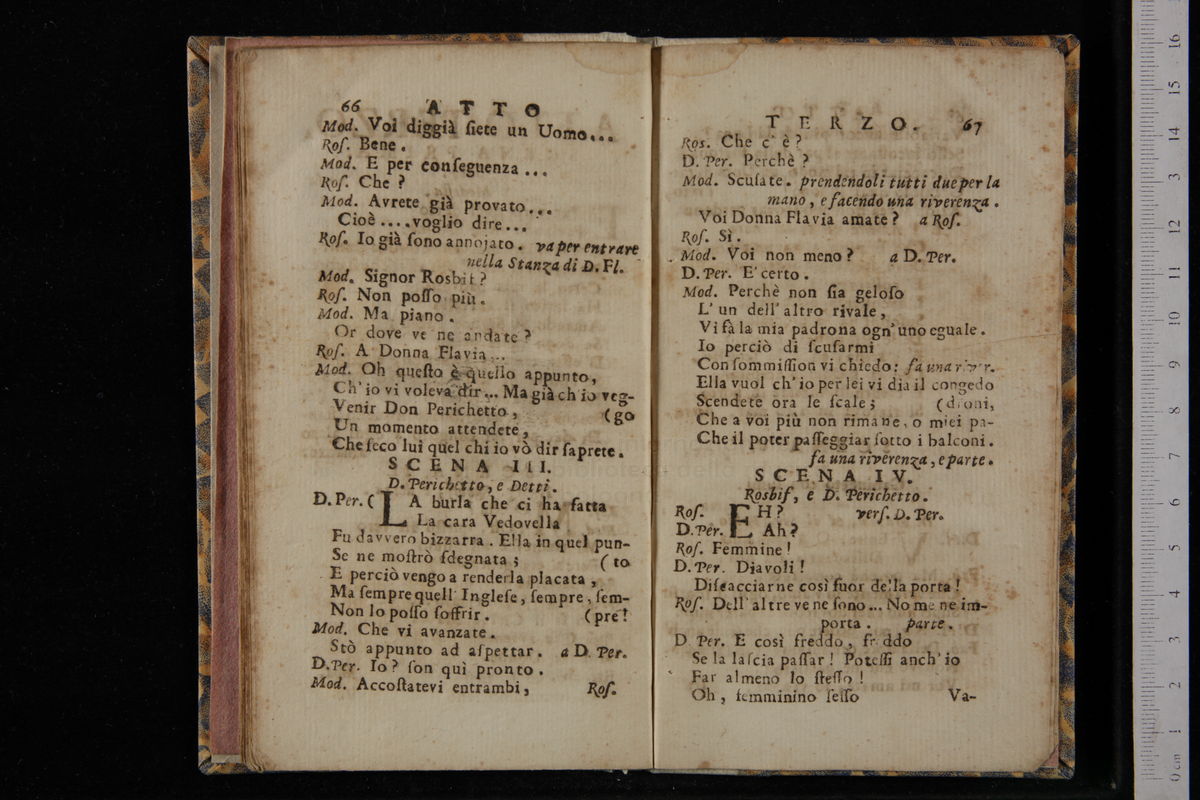 66 ATTO
Mod. Voi diggià ſiete un Uomo...
Roſ. Bene.
Mod. E per conſeguenza ...
Roſ. Che ?
Mod. Avrete già provato...
Cioè ....voglio dire...
Roſ. Io già ſono annojato. va per entrare
nella Stanza di D. Fl.
Mod. Signor Rosbif?
Roſ. Non poſſo più.
Mod. Ma piano.
Or dove ve ne andate ?
Roſ. A Donna Flavia...
Mod. Oh queſto è quello appunto,
Ch' io vi voleva dir... Ma già ch'io veg-
Venir Don Perichetto, (go
Un momento attendete,
Che ſeco lui quel chi io vò dir ſaprete.
SCENA III.
D. Perichetto, e Detti.
D. Per. ( LA burla che ci ha fatta
La cara Vedovella
Fu davvero bizzarra. Ella in quel pun-
Se ne moſtrò ſdegnata ; ( to
E perciò vengo a renderla placata ,
Ma ſempre quell' Ingleſe, ſempre, ſem-
Non lo poſſo ſoffrir. (pre!
Mod. Che vi avanzate.
Stò appunto ad aſpettar. a D. Per.
D. Per. Io? ſon quì pronto.
Mod. Accoſtatevi entrambi, Roſ.
TERZO. 67
Ros. Che c' è ?
D. Per. Perchè ?
Mod. Scuſate. prendendoli tutti due per la
mano, e facendo una riverenza.
Voi Donna Flavia amate ? a Roſ.
Roſ. Sì.
Mod. Voi non meno ? a D. Per.
D. Per. E' certo.
Mod. Perchè non ſia geloſo
L' un dell' altro rivale,
Vi fà la mia padrona ogn' uno eguale.
Io perciò di ſcuſarmi
Con ſommiſſion vi chiedo: fa una river.
Ella vuol ch' io per lei vi dia il congedo
Scendete ora le ſcale; ( droni,
Che a voi più non rimane, o miei pa-
Che il poter paſſeggiar ſotto i balconi.
fa una riverenza, e parte.
SCENA IV.
Rosbif, e D. Perichetto.
Roſ. EH ? verſ. D. Per.
D. Per. Ah?
Roſ. Femmine !
D. Per. Diavoli !
Diſcacciarne così fuor della porta !
Roſ. Dell' altre ve ne ſono ... No me ne im-
porta. parte.
D. Per. E così freddo, freddo
Se la laſcia paſſar ! Poteſſi anch' io
Far almeno lo ſteſſo !
Oh, femminino ſeſſo Va-